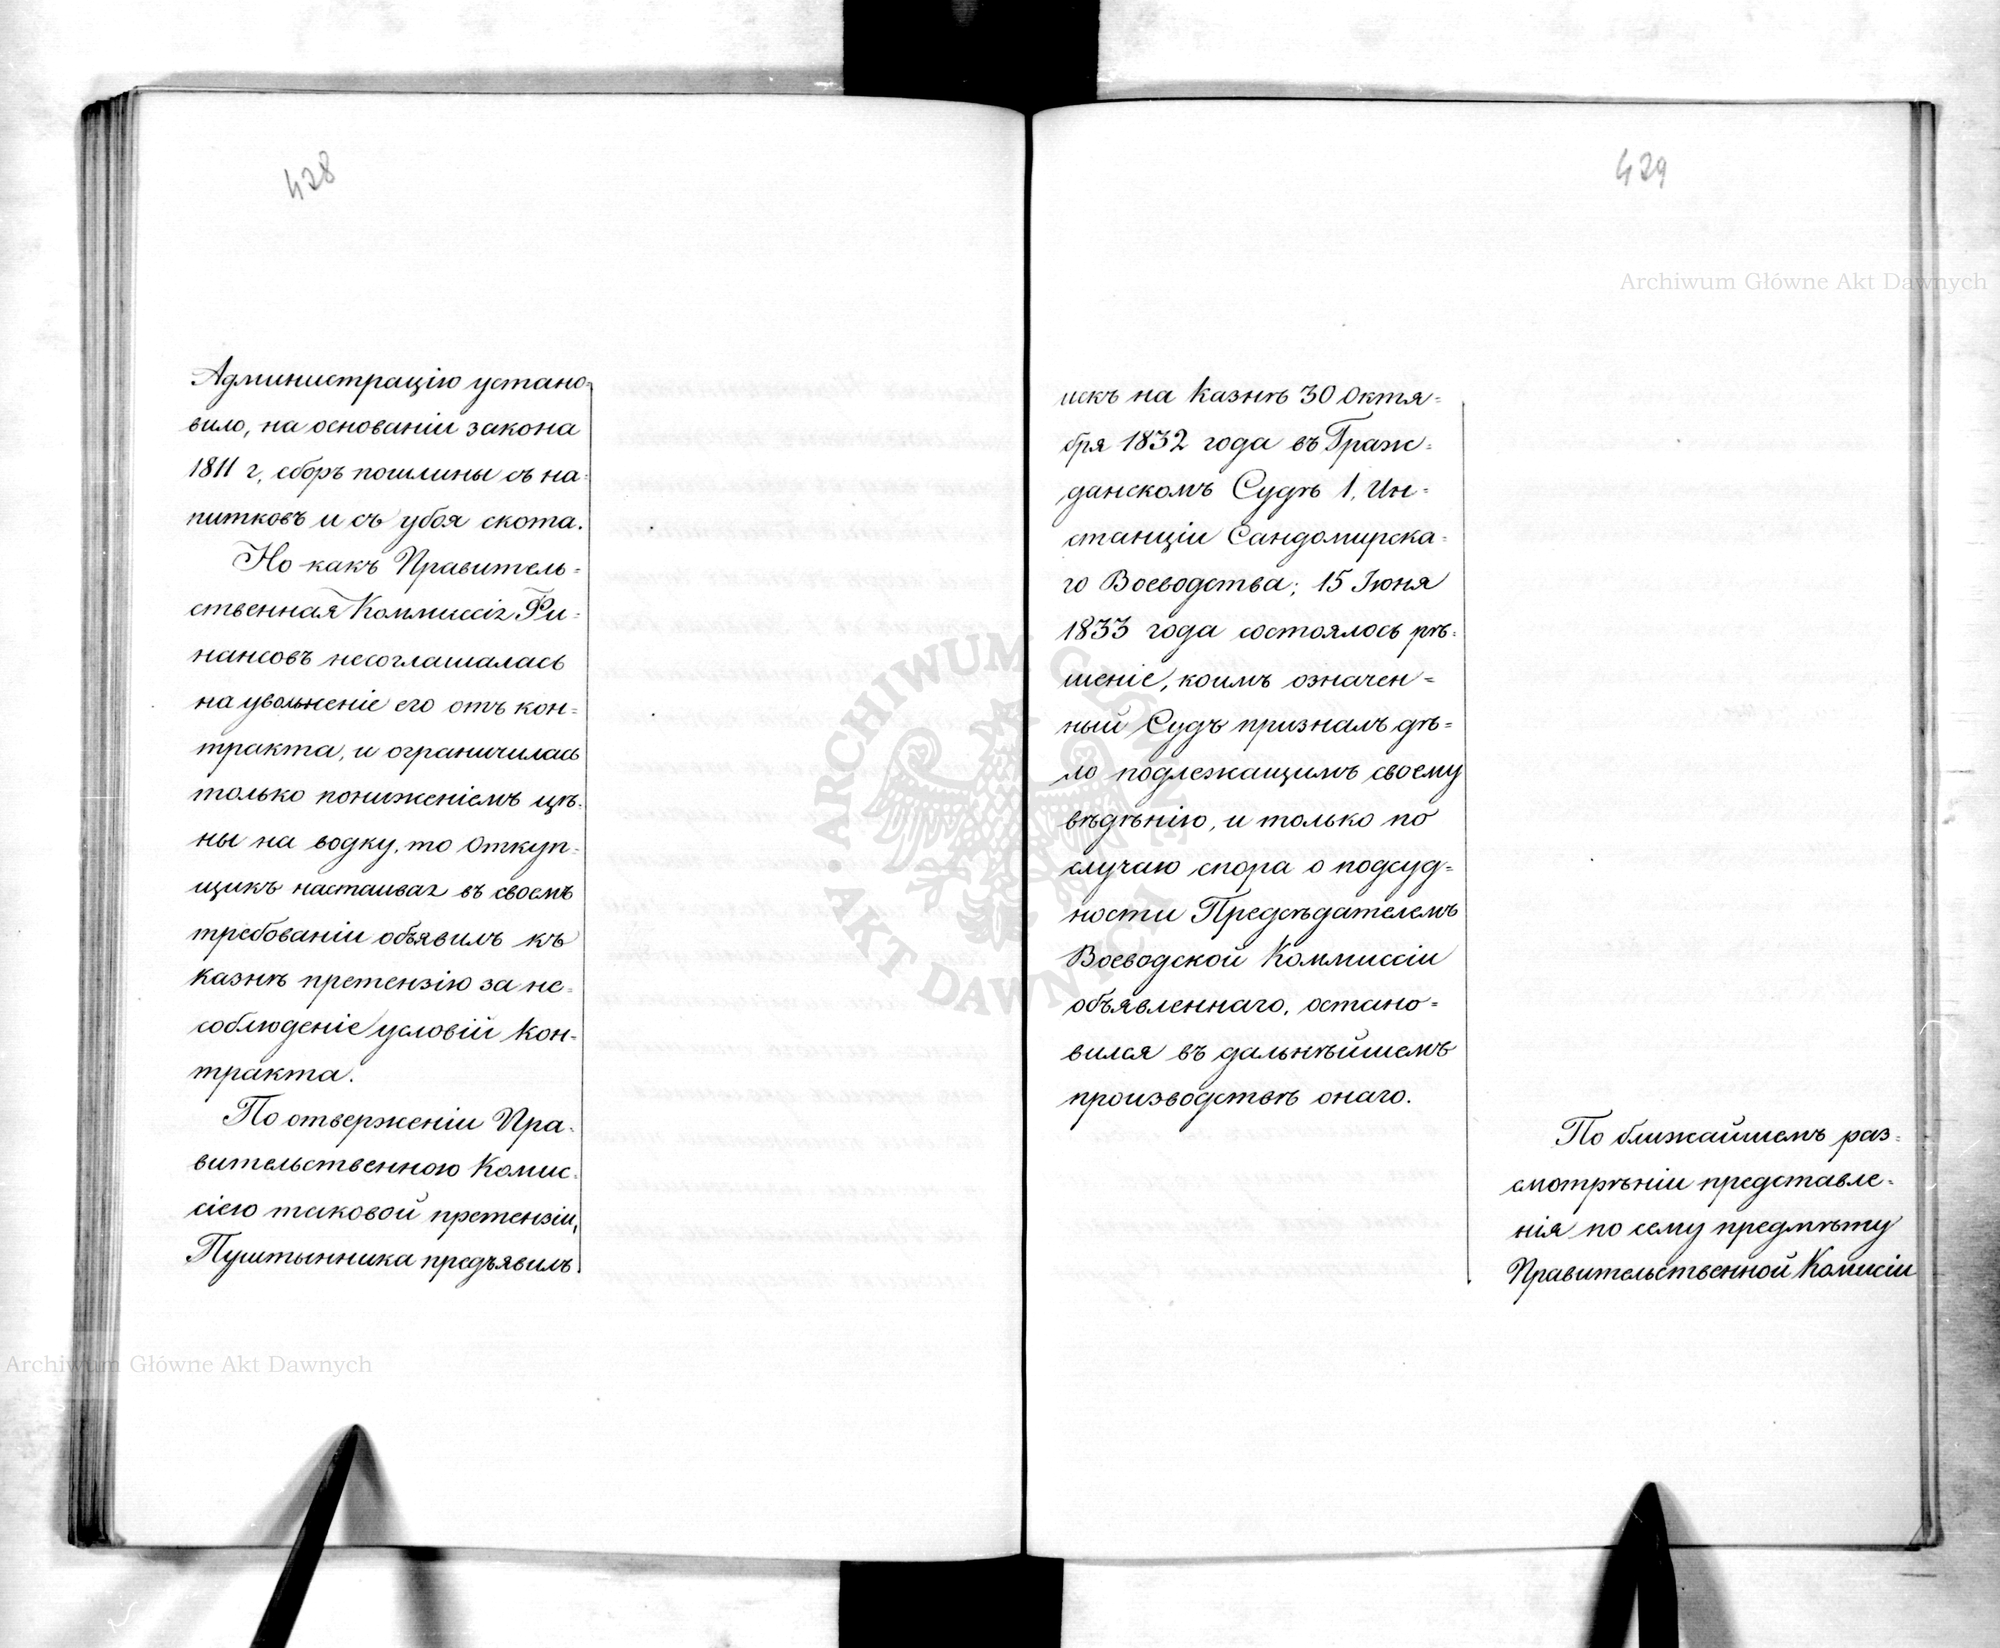 428
Администрацію устано=
вило, на основаніи закона
1811 г, сборъ пошлины съ на=
питковъ и съ убоя скота.
Но какъ Правитель=
ственная Коммиссія Фи=
нансовъ несоглашалась
на увольненіе его отъ кон=
тракта, и ограничилась
только пониженіемъ цѣ=
ны на водку, то Откуп=
щикъ настаивая въ своемъ
требованіи объявилъ къ
Казнѣ претензію за не=
соблюденіе условій Кон=
тракта.
По отверженіи Пра=
вительственною Комис=
сіею таковой претензіи,
Пуштынника предъявилъ
429
искъ на Казнѣ 30 Октя=
бря 1832 года въ Граж=
данскомъ Судѣ 1, Ин=
станціи Сандомирска=
го Воеводства; 15 Іюня
1833 года состоялось рѣ=
шеніе, коимъ означен=
ный Судъ призналъ дѣ=
ло подлежащимъ своему
вѣдѣнію, и только по
случаю спора о подсуд=
ности Предсѣдателемъ
Воеводской Коммиссіи
объявленнаго, остано=
вился въ дальнѣйшемъ
производствѣ онаго.
По ближайшемъ раз=
смотрѣніи представле=
нія по сему предмѣту
Правительственной Комисіи
Archiwum Główne Akt Dawnych
Archiwum Główne Akt Dawnych
ARCHIWUM GŁÓWNE AKT DAWNYCH